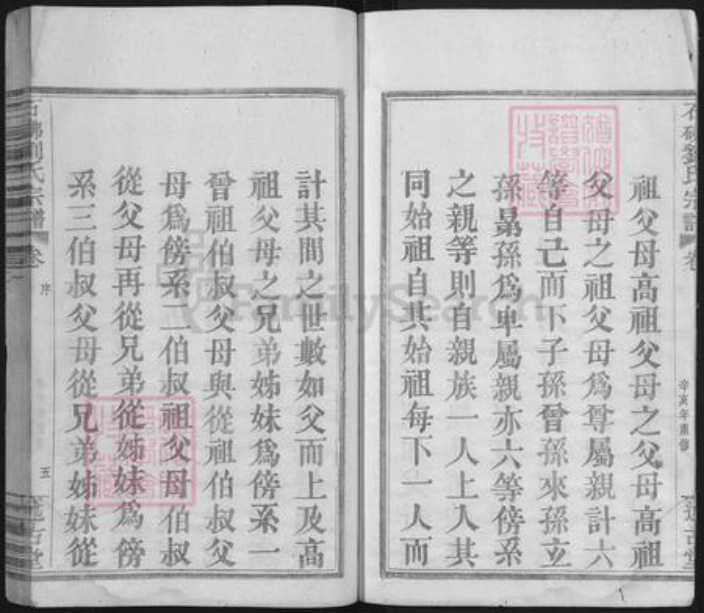 祖父母高祖父母之父母高祖
父母之祖父母爲尊屬親計六
等自己而下子孫曾孫來孫立
孫晜孫爲卑屬親亦六等傍系
之親等則自親族一人上人其
同始祖自其始祖每下一人而
辛亥年重修
計其間之世數如父而上及高
祖父母之兄弟姊妹爲傍系一
曾祖伯叔父母與從祖伯叔父
母爲傍系二伯叔祖父母伯叔
從父母再從兄弟從姊妹爲傍
系三伯叔父母從兄弟姊妹從
劉氏宗譜
卷
序
五
FamilySearch